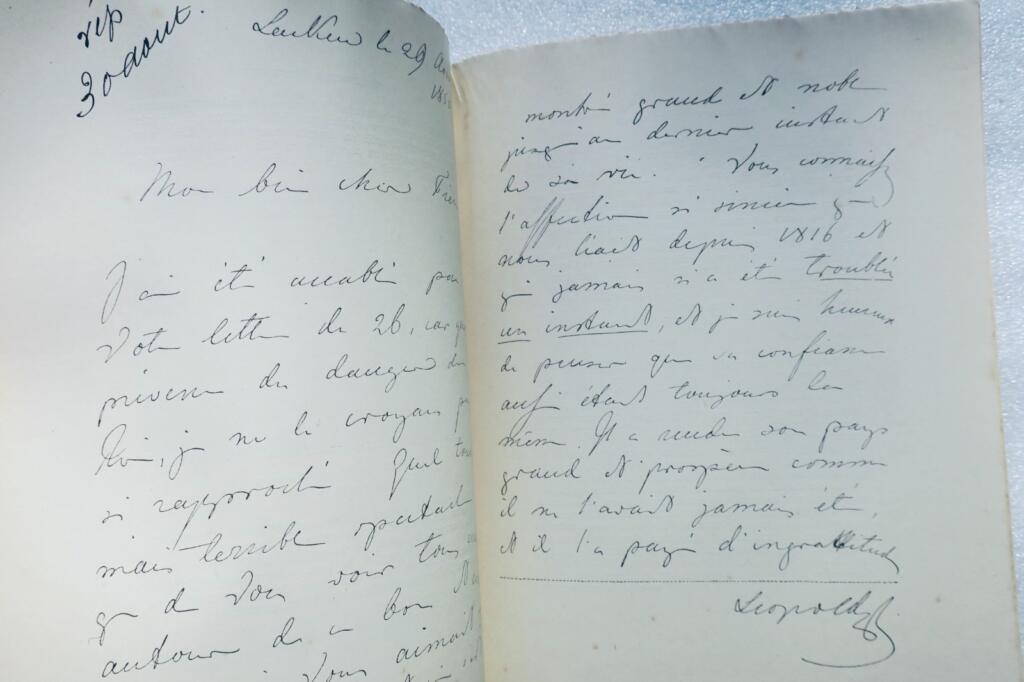 rép
30 aout.
Laeken le 29
185
Mon bien cher
J'ai été accablé par
Votre lettre du 26, car
prévenu du danger du
Roi, je ne le croyais pas
si rapproché Quel
mais terrible spectacle
que de Vous voir tous
autour de ce bon
Vous aimait
montré grand et noble
jusqu'au dernier instant
de sa vie. Vous connaissez
l'affection si sincère qui
nous liait depuis 1816 et
qui jamais n'a été troublée
un instant, et je suis heureux
de penser que sa confiance
aussi étant toujours la
même. Il a rendu son pays
grand et prospère comme
il ne l'avait jamais été,
et il l'a payé d'ingratitude
Leopold